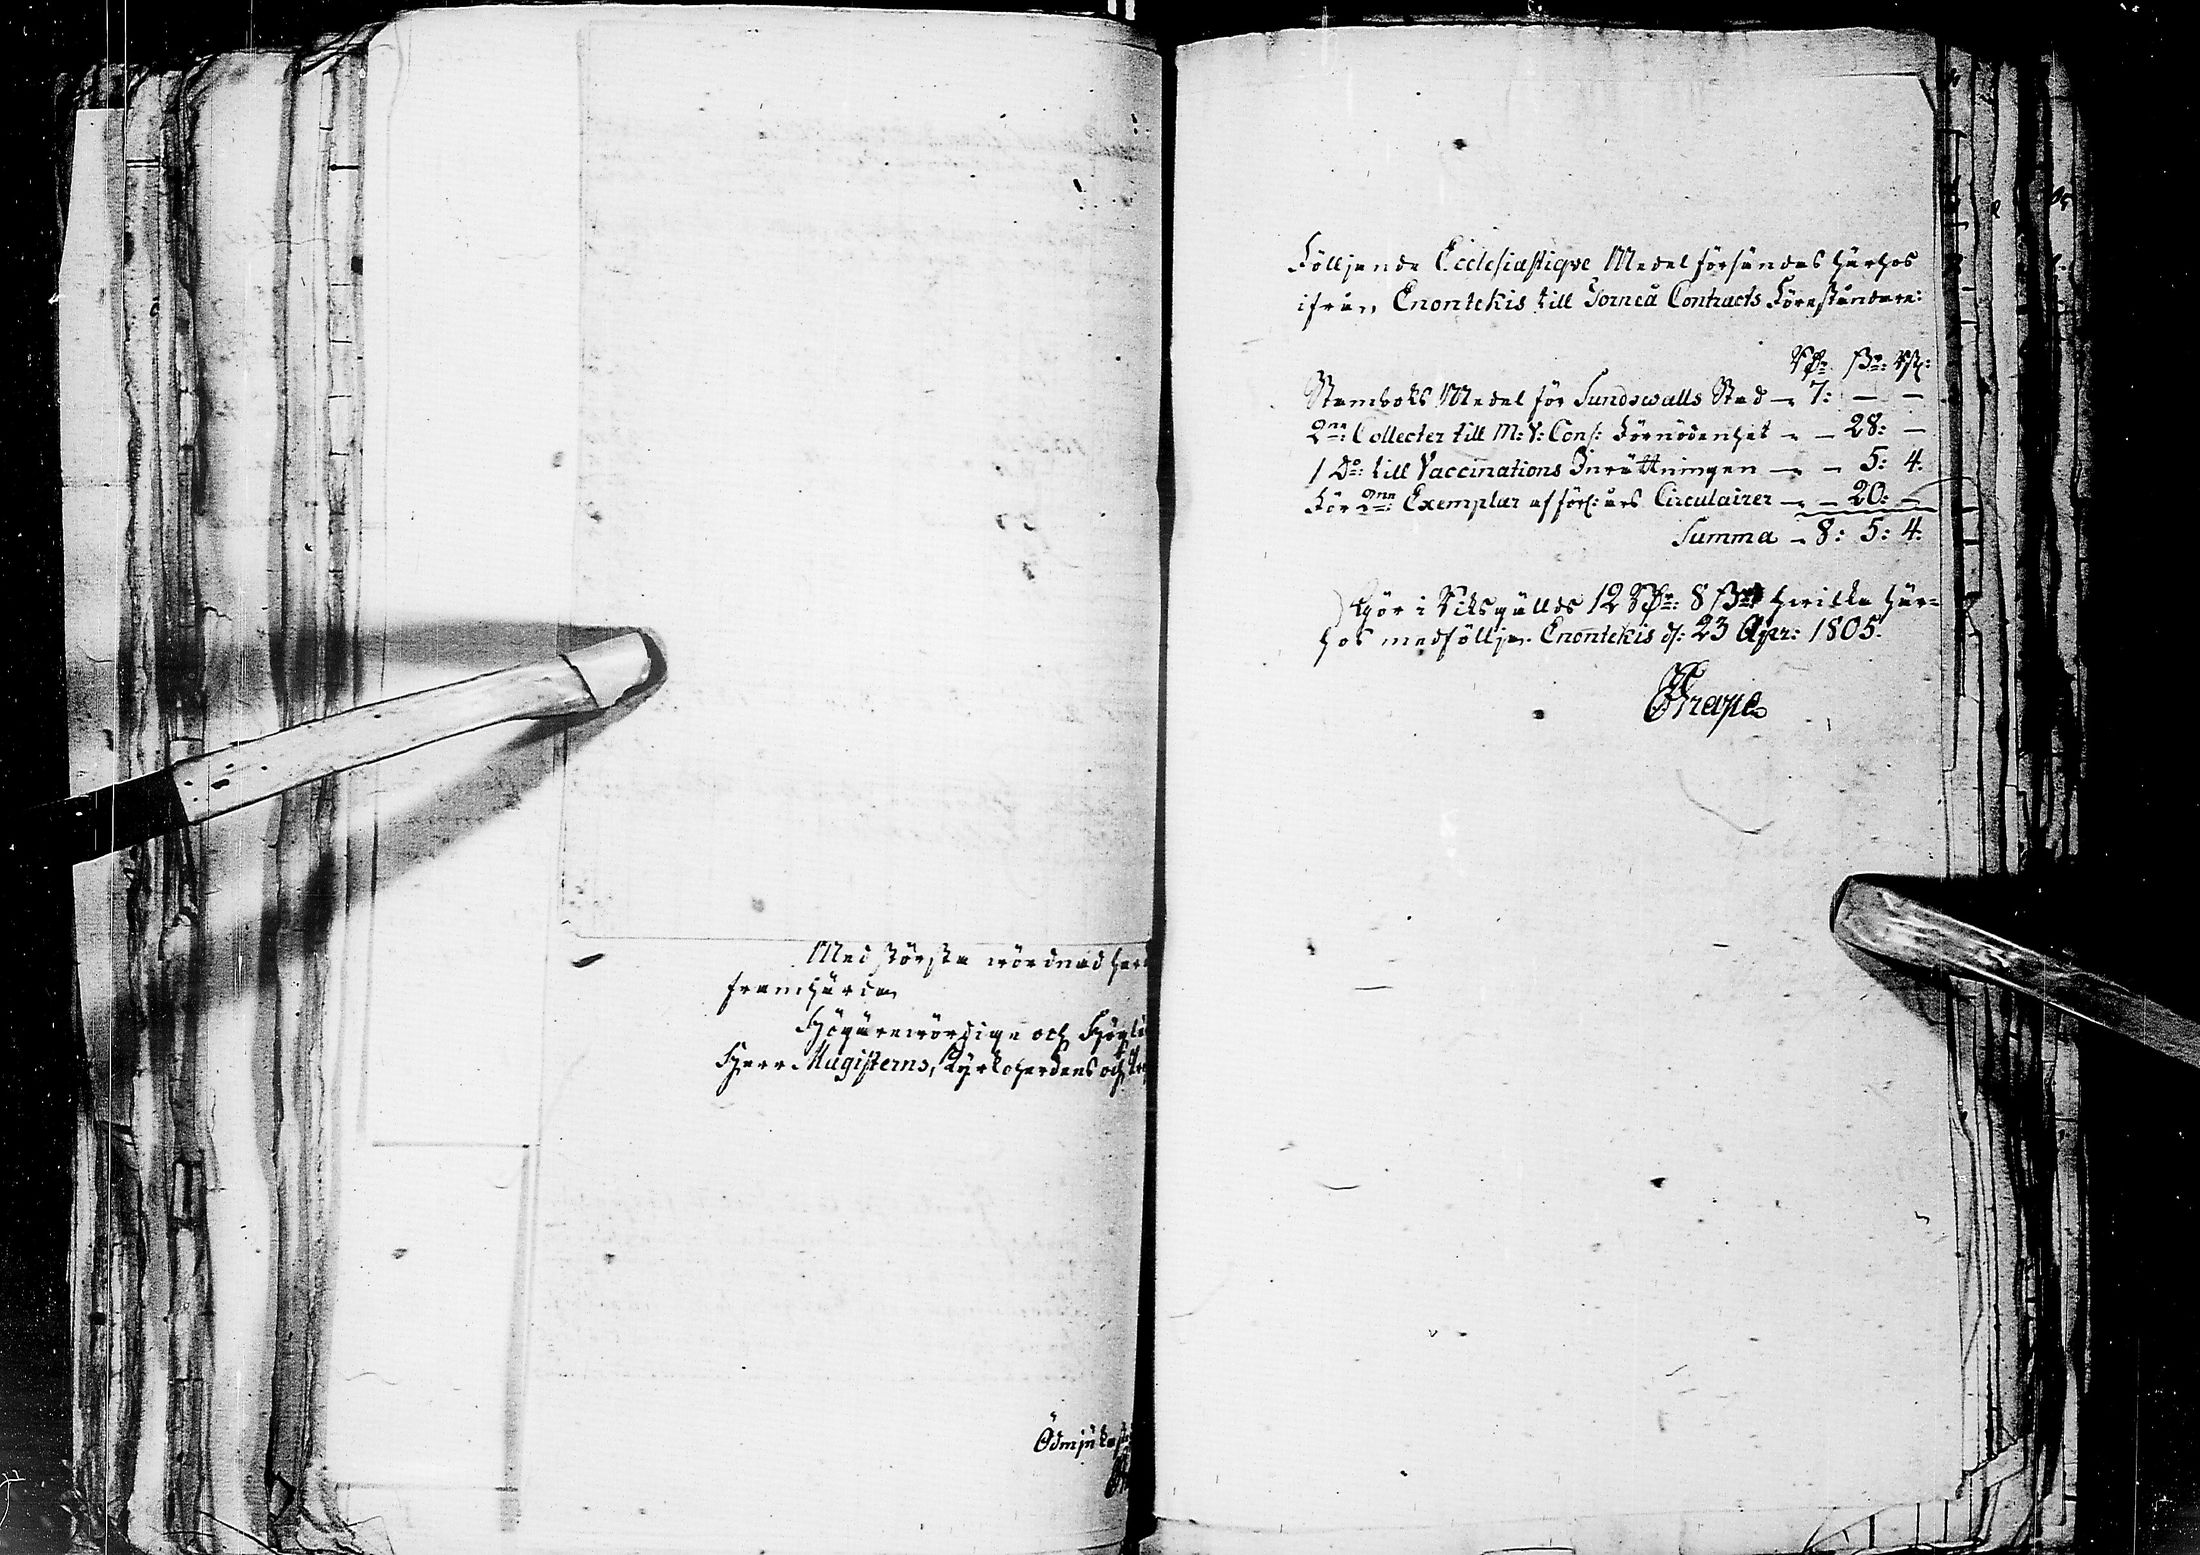 Med största wördnad har
framhärdar
Högärewördige och Höglä
Herr Magisterns, Kyrkoherdens och Pro
Ödmjukaste
Följande Ecclesiastiqve Medel försändas härhos
ifrån Enontekis till Torneå Contracts Föreståndare:
Rdr ßr: rst:
Stamboks Medel för Sundswalls Stad — 7: — —
2ne: Collecter till M: V: Cons: Förnödenhet — — 28: —
1 Do: till Vaccinations Inrättningen — — 5: 4.
För 2ne: Exemplar af förl: års Circulairer — — 20: —
Summa — 8: 5: 4.
Gör i Riksgälds 12 Rdr: 8 ßr hwilka här-
hos medföllja. Enontekis d: 23 Apr: 1805.
Grape